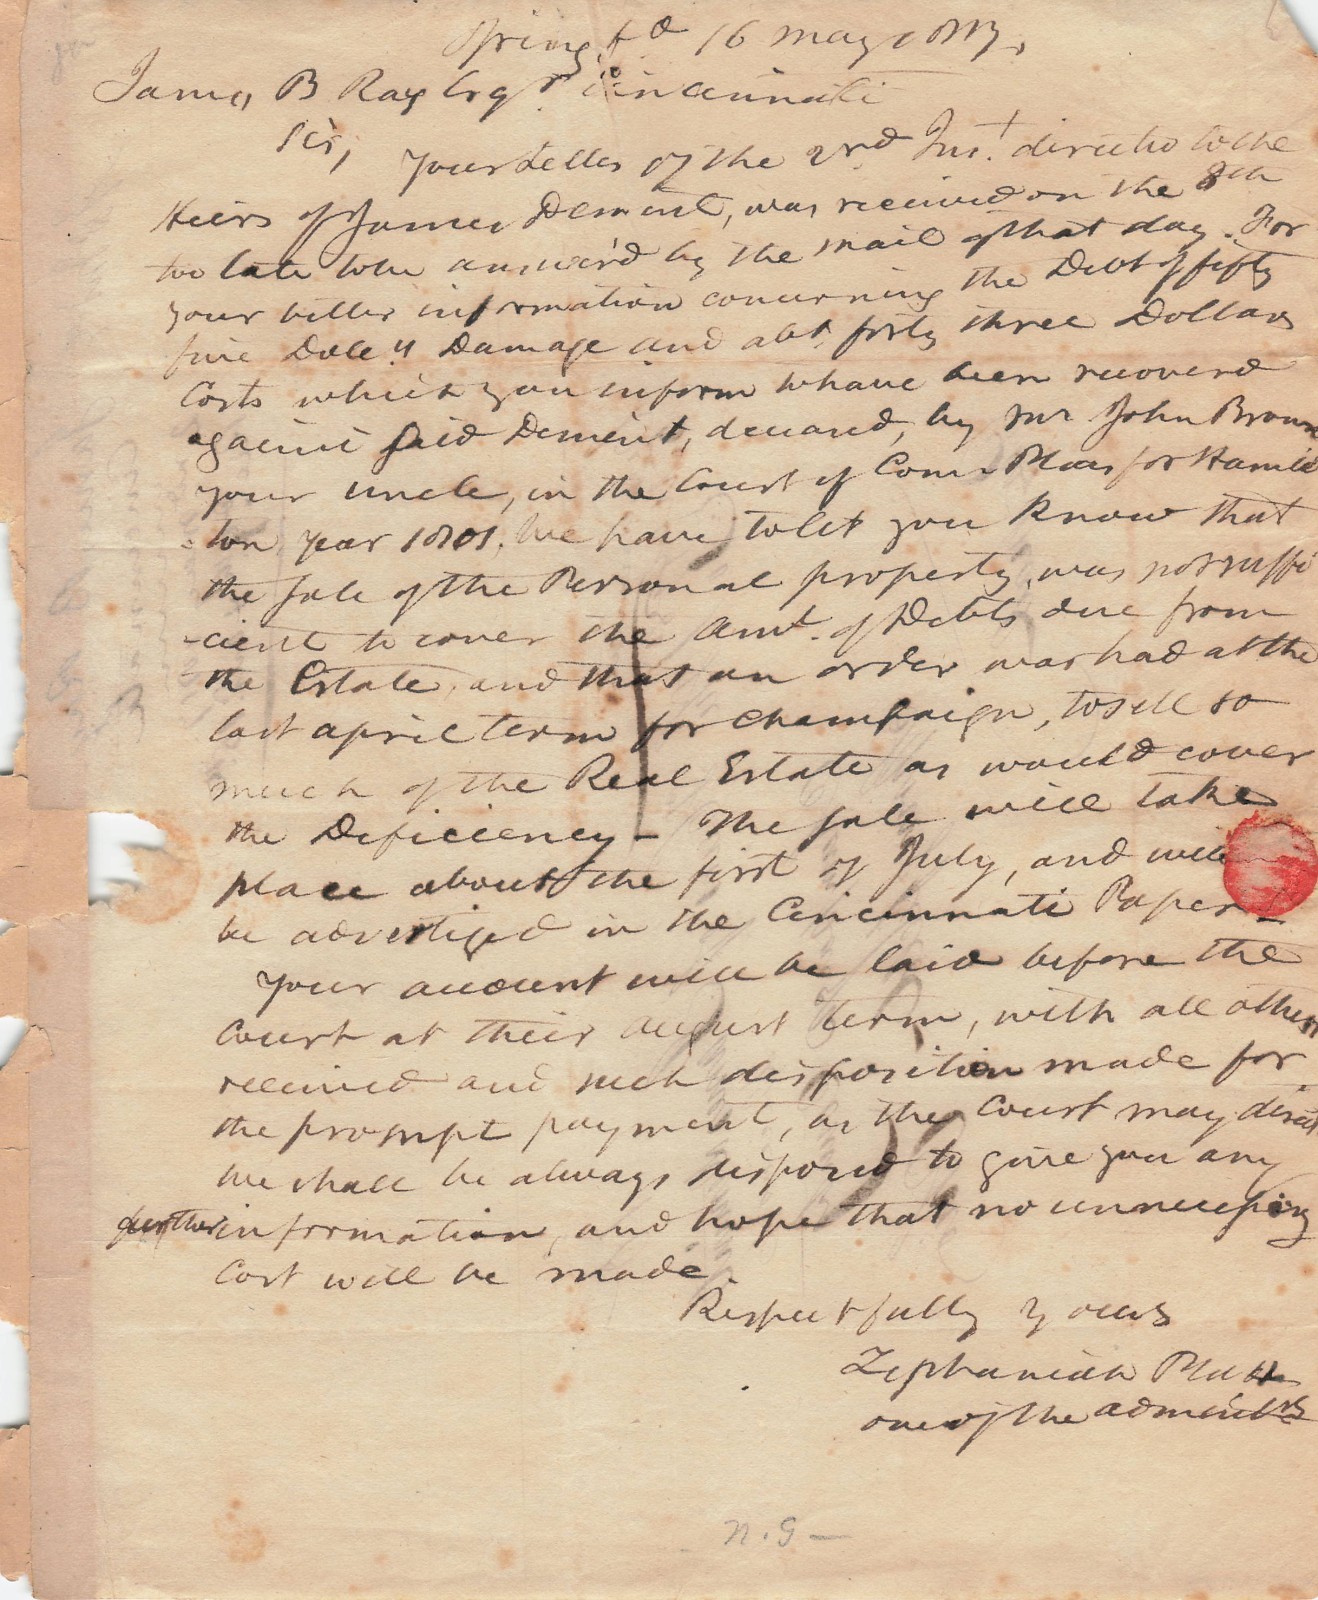 Springfd 16 may 1817,
James B Ray Esqr. Cincinnati
Sir,
Your Letter of the 2rd Inst. directed to the
Heirs of James Dement, was received on the 8th
too late to be answer'd by the mail of that day. For
your better information concerning the Debt of fifty
five Dolls Damage and abt. forty three Dollars
Costs which you inform to have been recovered
against said Dement, deceased, by Mr John Brown
your uncle, in the Court of Com Pleas for Hamil
=ton year 1801. We have to let you know that
the sale of the Personal property, was not suffi
-cient to cover the Amt. of Debts due from
the Estate, and that an order was had at the
last april term for Champaign, to sell so
much of the Real Estate as would cover
the Deficiency - The sale will take
place about the first of July, and will
be advertised in the Cincinnati Papers
Your account will be laid before the
Court at their august term, with all others
received and such disposition made for
the prompt payment, as the Court may direct
We shall be always disposed to give you any
further information, and hope that no unnecessary
Cost will be made.
Respectfully yours
Zephaniah Platt
one of the adminrs
n.G—